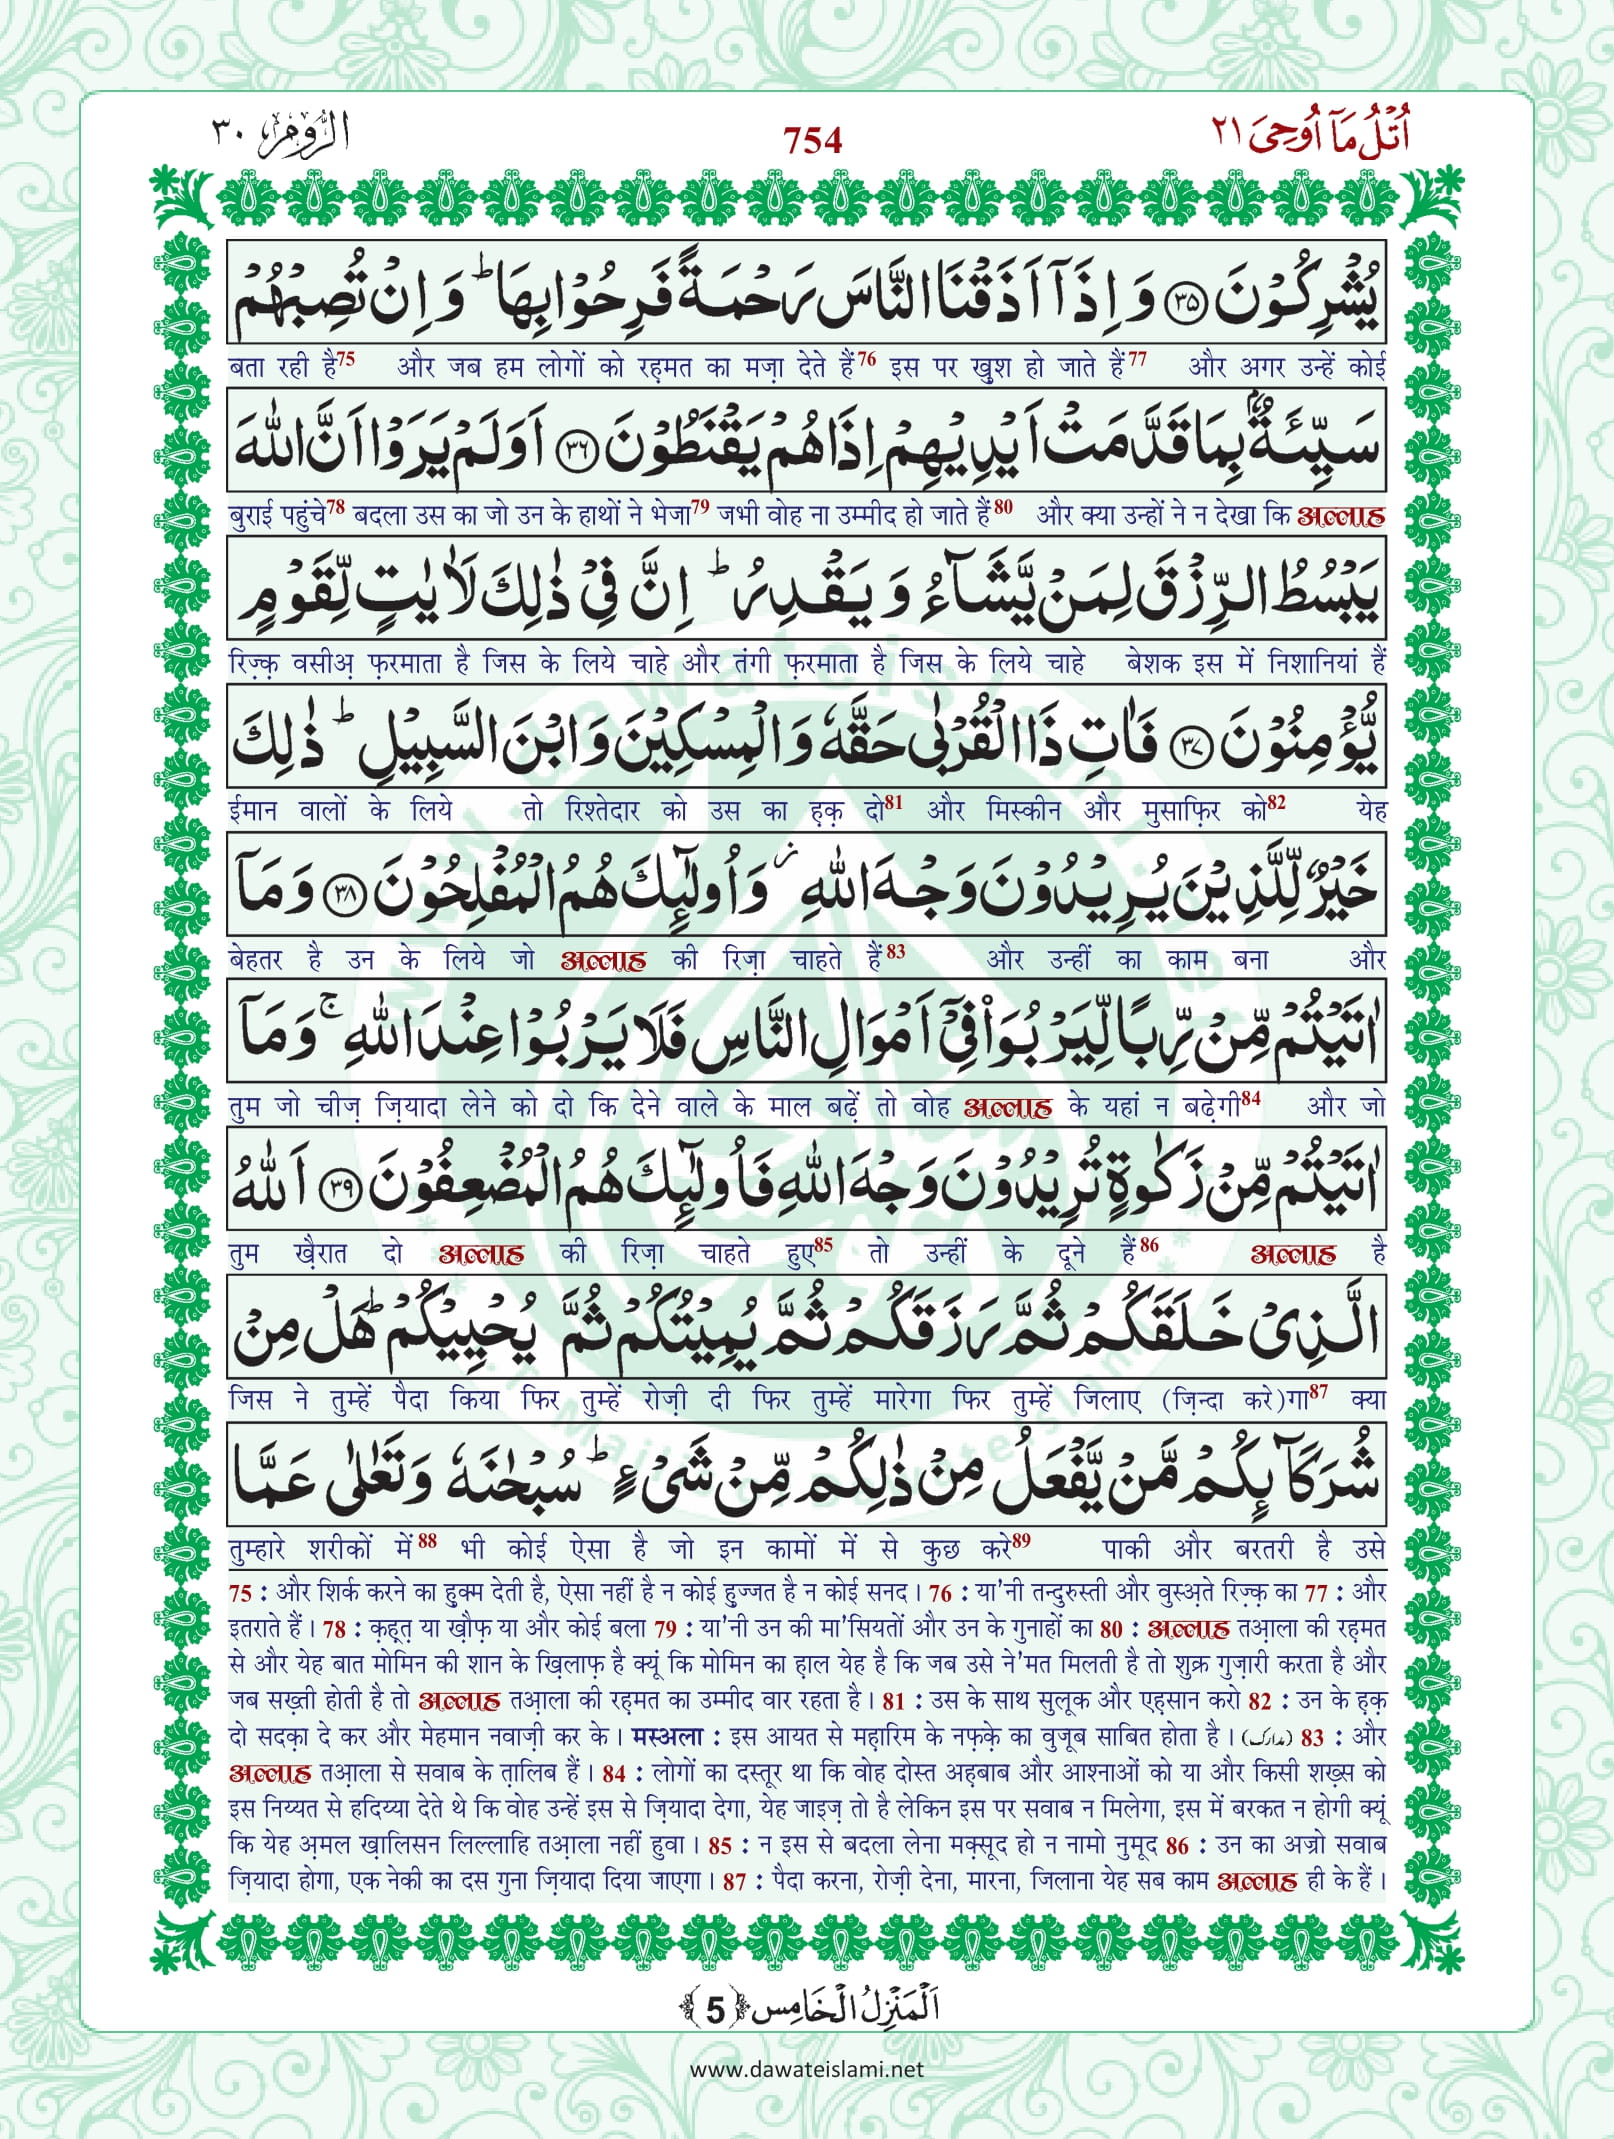 اُتْلُ مَآ اُوْحِیَ ٢١
754
الرُّوْم ٣٠
یُشْرِكُوْنَ ﴿٣٥﴾ وَ اِذَاۤ اَذَقْنَا النَّاسَ رَحْمَةً فَرِحُوْا بِهَا ؕ وَ اِنْ تُصِبْهُمْ
बता रही है75 और जब हम लोगों को रह़मत का मज़ा देते हैं76 इस पर खु़श हो जाते हैं77 और अगर उन्हें कोई
سَیِّئَةٌۢ بِمَا قَدَّمَتْ اَیْدِیْهِمْ اِذَا هُمْ یَقْنَطُوْنَ ﴿٣٦﴾ اَوَ لَمْ یَرَوْا اَنَّ اللّٰهَ
बुराई पहुंचे78 बदला उस का जो उन के हाथों ने भेजा79 जभी वोह ना उम्मीद हो जाते हैं80 और क्या उन्हों ने न देखा कि अल्लाह
یَبْسُطُ الرِّزْقَ لِمَنْ یَّشَآءُ وَ یَقْدِرُ ؕ اِنَّ فِیْ ذٰلِكَ لَاٰیٰتٍ لِّقَوْمٍ
रिज़्क़ वसीअ़ फ़रमाता है जिस के लिये चाहे और तंगी फ़रमाता है जिस के लिये चाहे बेशक इस में निशानियां हैं
یُّؤْمِنُوْنَ ﴿٣٧﴾ فَاٰتِ ذَا الْقُرْبٰى حَقَّهٗ وَ الْمِسْكِیْنَ وَ ابْنَ السَّبِیْلِ ؕ ذٰلِكَ
ईमान वालों के लिये तो रिश्तेदार को उस का ह़क़ दो81 और मिस्कीन और मुसाफ़िर को82 येह
خَیْرٌ لِّلَّذِیْنَ یُرِیْدُوْنَ وَجْهَ اللّٰهِ ؗ وَ اُولٰٓىِٕكَ هُمُ الْمُفْلِحُوْنَ ﴿٣٨﴾ وَ مَاۤ
बेहतर है उन के लिये जो अल्लाह की रिज़ा चाहते हैं83 और उन्हीं का काम बना और
اٰتَیْتُمْ مِّنْ رِّبًا لِّیَرْبُوَا۠ فِیْۤ اَمْوَالِ النَّاسِ فَلَا یَرْبُوْا عِنْدَ اللّٰهِ ۚ وَ مَاۤ
तुम जो चीज़ ज़ियादा लेने को दो कि देने वाले के माल बढ़ें तो वोह अल्लाह के यहां न बढ़ेगी84 और जो
اٰتَیْتُمْ مِّنْ زَكٰوةٍ تُرِیْدُوْنَ وَجْهَ اللّٰهِ فَاُولٰٓىِٕكَ هُمُ الْمُضْعِفُوْنَ ﴿٣٩﴾ اَللّٰهُ
तुम ख़ैरात दो अल्लाह की रिज़ा चाहते हुए85 तो उन्हीं के दूने हैं86 अल्लाह है
الَّذِیْ خَلَقَكُمْ ثُمَّ رَزَقَكُمْ ثُمَّ یُمِیْتُكُمْ ثُمَّ یُحْیِیْكُمْ ؕ هَلْ مِنْ
जिस ने तुम्हें पैदा किया फिर तुम्हें रोज़ी दी फिर तुम्हें मारेगा फिर तुम्हें जिलाए (ज़िन्दा करे)गा87 क्या
شُرَكَآىِٕكُمْ مَّنْ یَّفْعَلُ مِنْ ذٰلِكُمْ مِّنْ شَیْءٍ ؕ سُبْحٰنَهٗ وَ تَعٰلٰى عَمَّا
तुम्हारे शरीकों में88 भी कोई ऐसा है जो इन कामों में से कुछ करे89 पाकी और बरतरी है उसे
75 : और शिर्क करने का हु़क्म देती है, ऐसा नहीं है न कोई हु़ज्जत है न कोई सनद। 76 : या'नी तन्दुरुस्ती और वुस्अ़ते रिज़्क़ का 77 : और
इतराते हैं। 78 : क़ह़त़ या ख़ौफ़ या और कोई बला 79 : या'नी उन की मा'सियतों और उन के गुनाहों का 80 : अल्लाह तआ़ला की रह़मत
से और येह बात मोमिन की शान के ख़िलाफ़ है क्यूं कि मोमिन का ह़ाल येह है कि जब उसे ने'मत मिलती है तो शुक्र गुज़ारी करता है और
जब सख़्ती होती है तो अल्लाह तआ़ला की रह़मत का उम्मीद वार रहता है। 81 : उस के साथ सुलूक और एह़सान करो 82 : उन के ह़क़
दो सदक़ा दे कर और मेहमान नवाज़ी कर के। मस्अला : इस आयत से मह़ारिम के नफ़्क़े का वुजूब साबित होता है। (مدارک) 83 : और
अल्लाह तआ़ला से सवाब के त़ालिब हैं। 84 : लोगों का दस्तूर था कि वोह दोस्त अह़बाब और आश्नाओं को या और किसी शख़्स को
इस निय्यत से हदिय्या देते थे कि वोह उन्हें इस से ज़ियादा देगा, येह जाइज़ तो है लेकिन इस पर सवाब न मिलेगा, इस में बरकत न होगी क्यूं
कि येह अ़मल ख़ालिसन लिल्लाहि तआ़ला नहीं हुवा। 85 : न इस से बदला लेना मक़्सूद हो न नामो नुमूद 86 : उन का अज्रो सवाब
ज़ियादा होगा, एक नेकी का दस गुना ज़ियादा दिया जाएगा। 87 : पैदा करना, रोज़ी देना, मारना, जिलाना येह सब काम अल्लाह ही के हैं।
اَلْمَنْزِلُ الْخَامِس ﴿5﴾
www.dawateislami.net